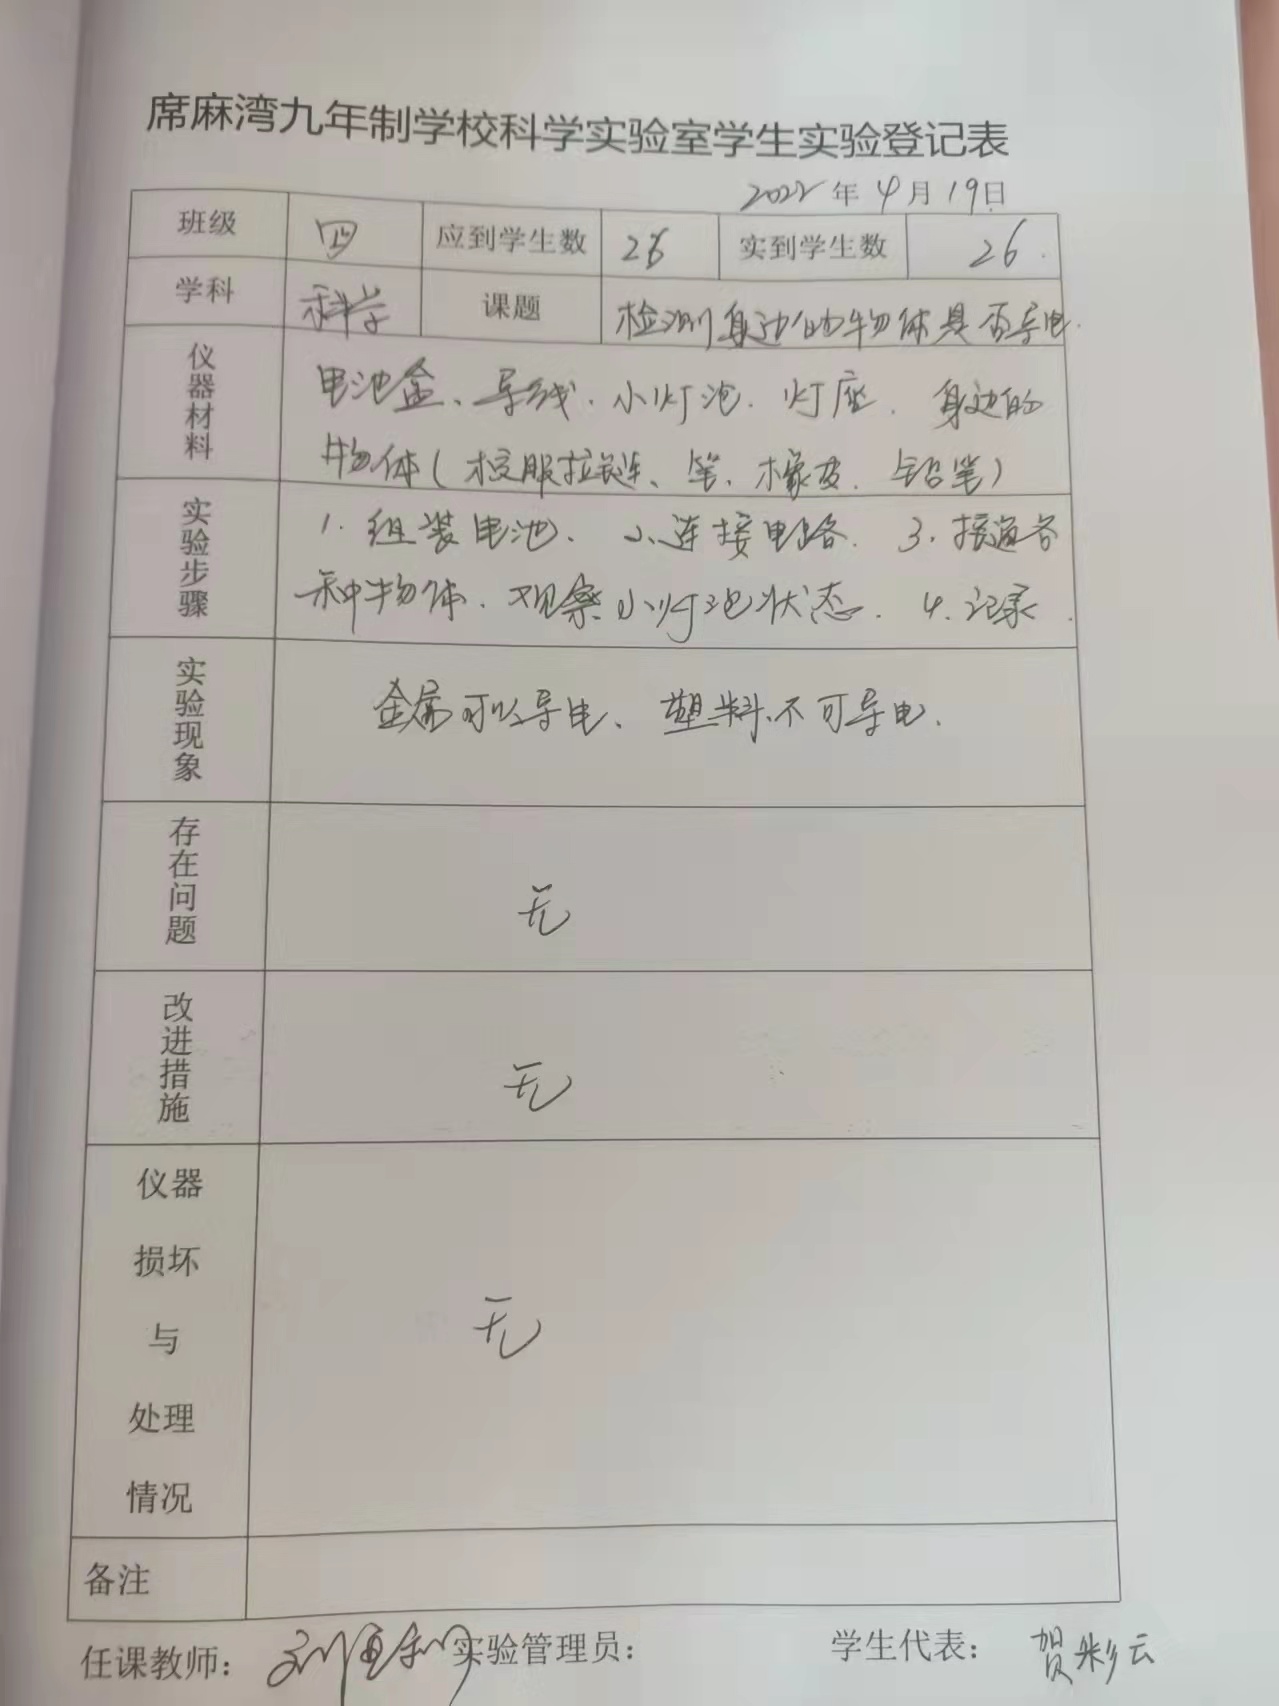 席麻湾九年制学校科学实验室学生实验登记表
2022年4月19日
班级 四 应到学生数 26 实到学生数 26.
学科 科学 课题 检测身边的物体是否导电.
仪器材料 电池盒、导线、小灯泡、灯座、身边的
物体(校服拉链、笔、橡皮、铅笔)
实验步骤 1.组装电池、2、连接电路.3.接通各
种物体、观察小灯泡状态.4.记录.
实验现象 金属可以导电、塑料不可导电.
存在问题 无
改进措施 无
仪器损坏与处理情况 无
备注
任课教师: 实验管理员: 学生代表: 贺彩云